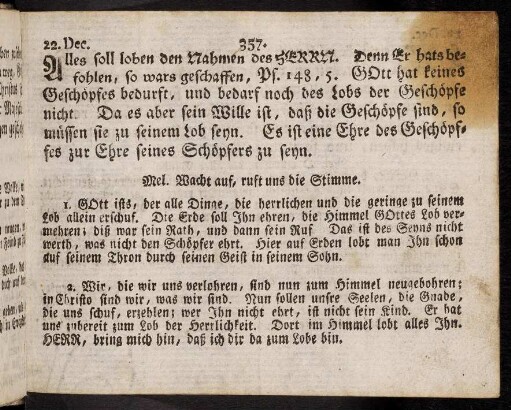 22. Dec. 357.
Alles soll loben den Nahmen des HERRN. Denn Er hats be-
fohlen, so wars geschaffen, Ps. 148, 5. GOtt hat keines
Geschöpfes bedurft, und bedarf noch des Lobs der Geschöpfe
nicht. Da es aber sein Wille ist, daß die Geschöpfe sind, so
müssen sie zu seinem Lob seyn. Es ist eine Ehre des Geschöpf-
fes zur Ehre seines Schöpfers zu seyn.
Mel. Wacht auf, ruft uns die Stimme.
1. GOtt ists, der alle Dinge, die herrlichen und die geringe zu seinem
Lob allein erschuf. Die Erde soll Ihn ehren, die Himmel GOttes Lob ver-
mehren; diß war sein Rath, und dann sein Ruf Das ist des Seyns nicht
werth, was nicht den Schöpfer ehrt. Hier auf Erden lobt man Ihn schon
auf seinem Thron durch seinen Geist in seinem Sohn.
2. Wir, die wir uns verlohren, sind nun zum Himmel neugebohren;
in Christo sind wir, was wir sind. Nun sollen unsre Seelen, die Gnade,
die uns schuf, erzehlen; wer Ihn nicht ehrt, ist nicht sein Kind. Er hat
uns zubereit zum Lob der Herrlichkeit. Dort im Himmel lobt alles Ihn.
HERR, bring mich hin, daß ich dir da zum Lobe bin.